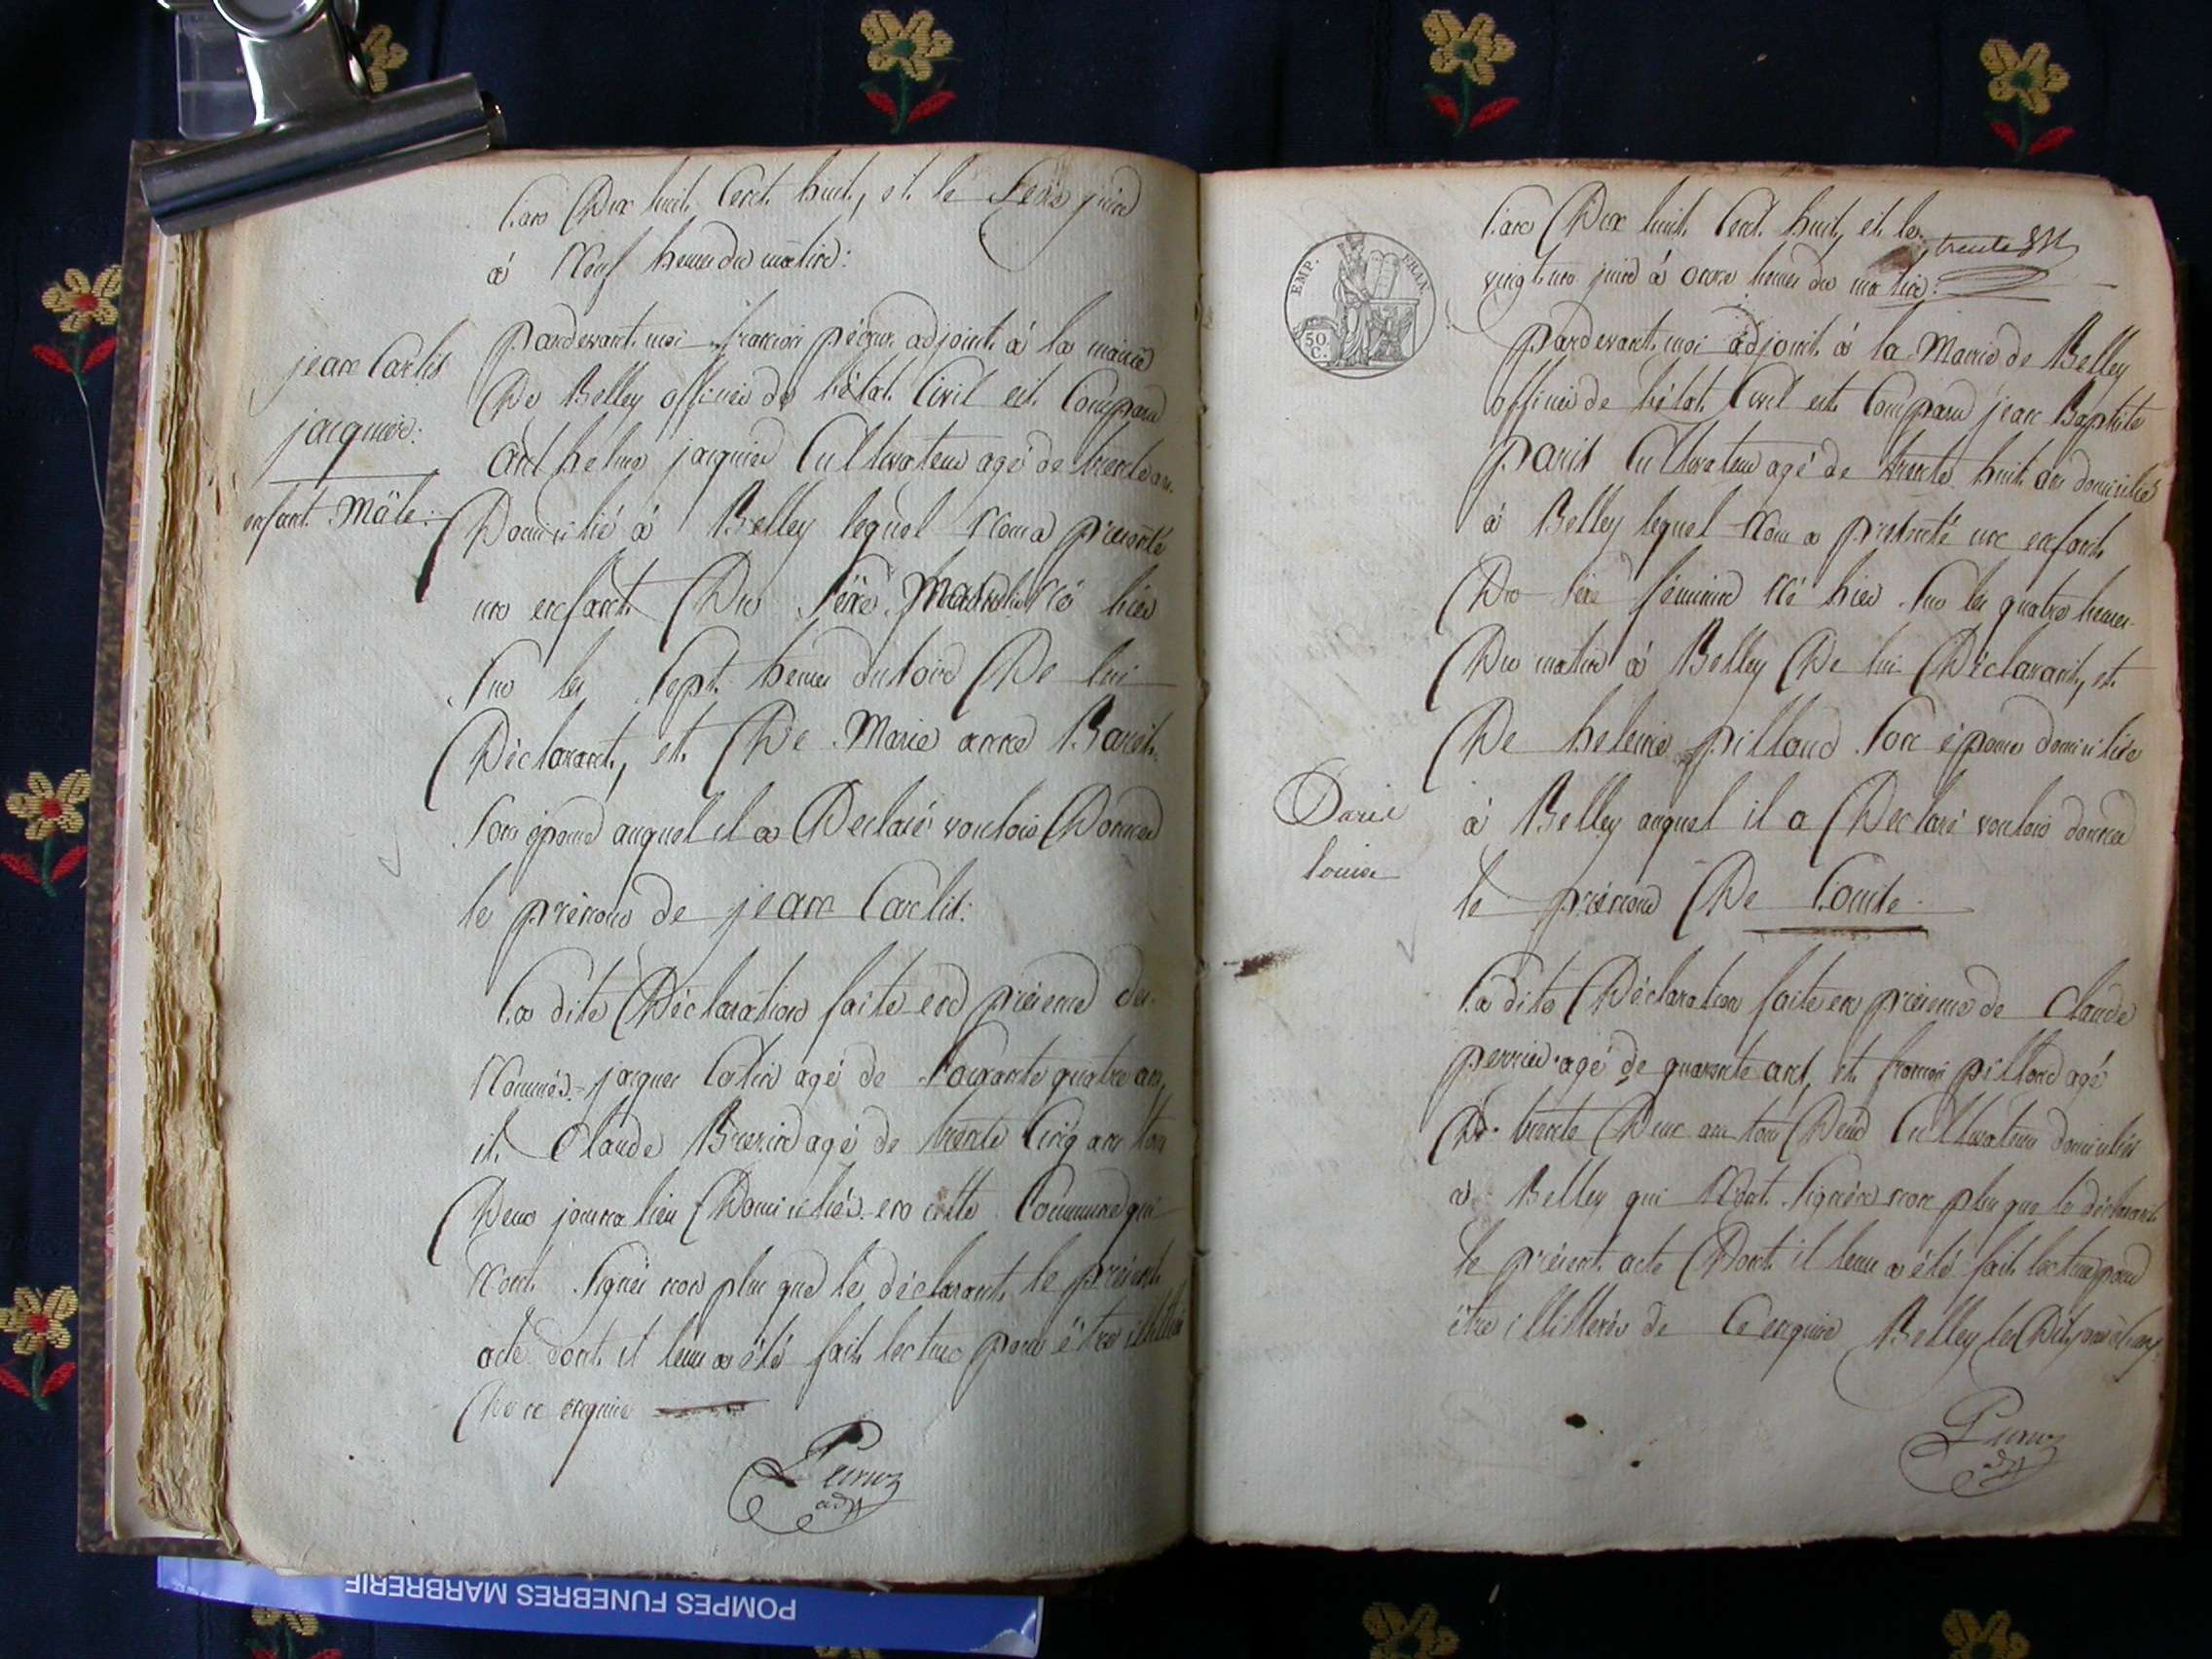 Lan Dix huit Cent huit, et le Seize juin
à Neuf heures du matin:
pardevant moi francois adjoint à la mairie
De Belley officier de létat Civil est Comparu
anthelme jacquier Cultivateur agé de trente ans
Domicilié à Belley lequel Nous a présenté
un enfant Du Séxe Masculin Né hier
Sur les Sept heures du soir De lui
Déclarant, et De Marie anne
Son épouse auquel il a Declaré vouloir Donner
le prénom de jean
La dite Déclaration faite en présence des
Nommés jacques agé de Soixante quatre ans,
et Claude agé de trente Cinq ans tous
Deux journaliers Domiciliés en cette Commune qui
Nont Signés non plus que le déclarant le présent
acte dont il leur a été fait lecture pour être
De ce enquis
adjt
jean
jacquier:
enfant Mâle:
EMP. FRAN.
50
C.
Lan Dix huit Cent huit, et le
vingt un juin à onze heures du matin:
pardevant moi adjoint à la Mairie de Belley
officier de létat Civil est Comparu jean Baptiste
paris Cultivateur agé de trente huit ans domicilié
à Belley lequel Nous a présenté un enfant
Du Séxe féminin Né hier Sur les quatre heures
Du matin à Belley De lui Déclarant, et
De heleine pilloud Son épouse domiciliée
à Belley auquel il a Declaré vouloir donner
le prénom De Louise
La dite Déclaration faite en présence de Claude
perrier agé de quarente ans, et francois pilloud agé
De trente Deux ans tous Deux Cultivateurs domiciliés
à Belley qui Nont Signés non plus que le déclarant
le présent acte Dont il leur a été fait lecture pour
être illitterés de Ce enquis Belley les Dits jour
adjt
Paris
louise
POMPES FUNEBRES MARBRERIE